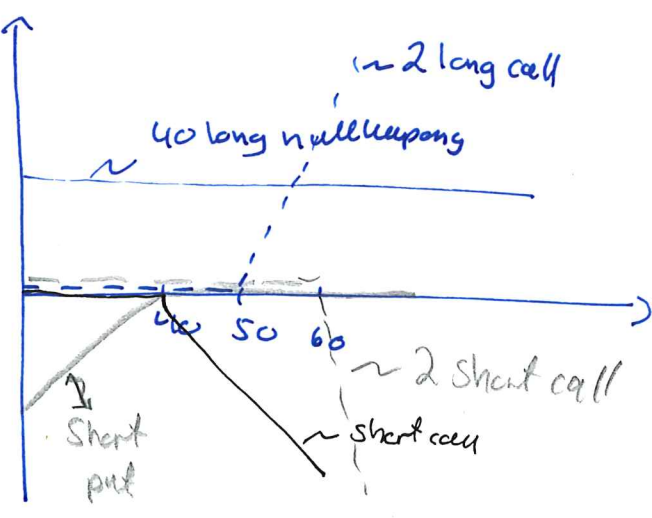 ~ 2 long call
40 long nullkupong
40 50 60
~ 2 short call
~ short call
Short
put